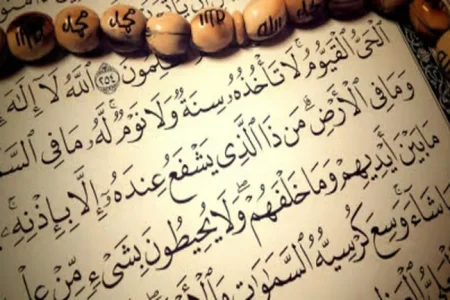 محمد محمد الله
ٱللَّهُ لَآ إِلَٰهَ
ٱلْحَىُّ ٱلْقَيُّومُ ۚ لَا تَأْخُذُهُۥ سِنَةٌ وَلَا نَوْمٌ ۚ لَّهُۥ مَا فِى ٱلسَّ
وَمَا فِى ٱلْأَرْضِ ۗ مَن ذَا ٱلَّذِى يَشْفَعُ عِندَهُۥٓ إِلَّا بِإِذْنِهِۦ ۚ
مَا بَيْنَ أَيْدِيهِمْ وَمَا خَلْفَهُمْ ۖ وَلَا يُحِيطُونَ بِشَىْءٍ مِّنْ عِلْ
شَآءَ ۚ وَسِعَ كُرْسِيُّهُ ٱلسَّمَٰوَٰتِ